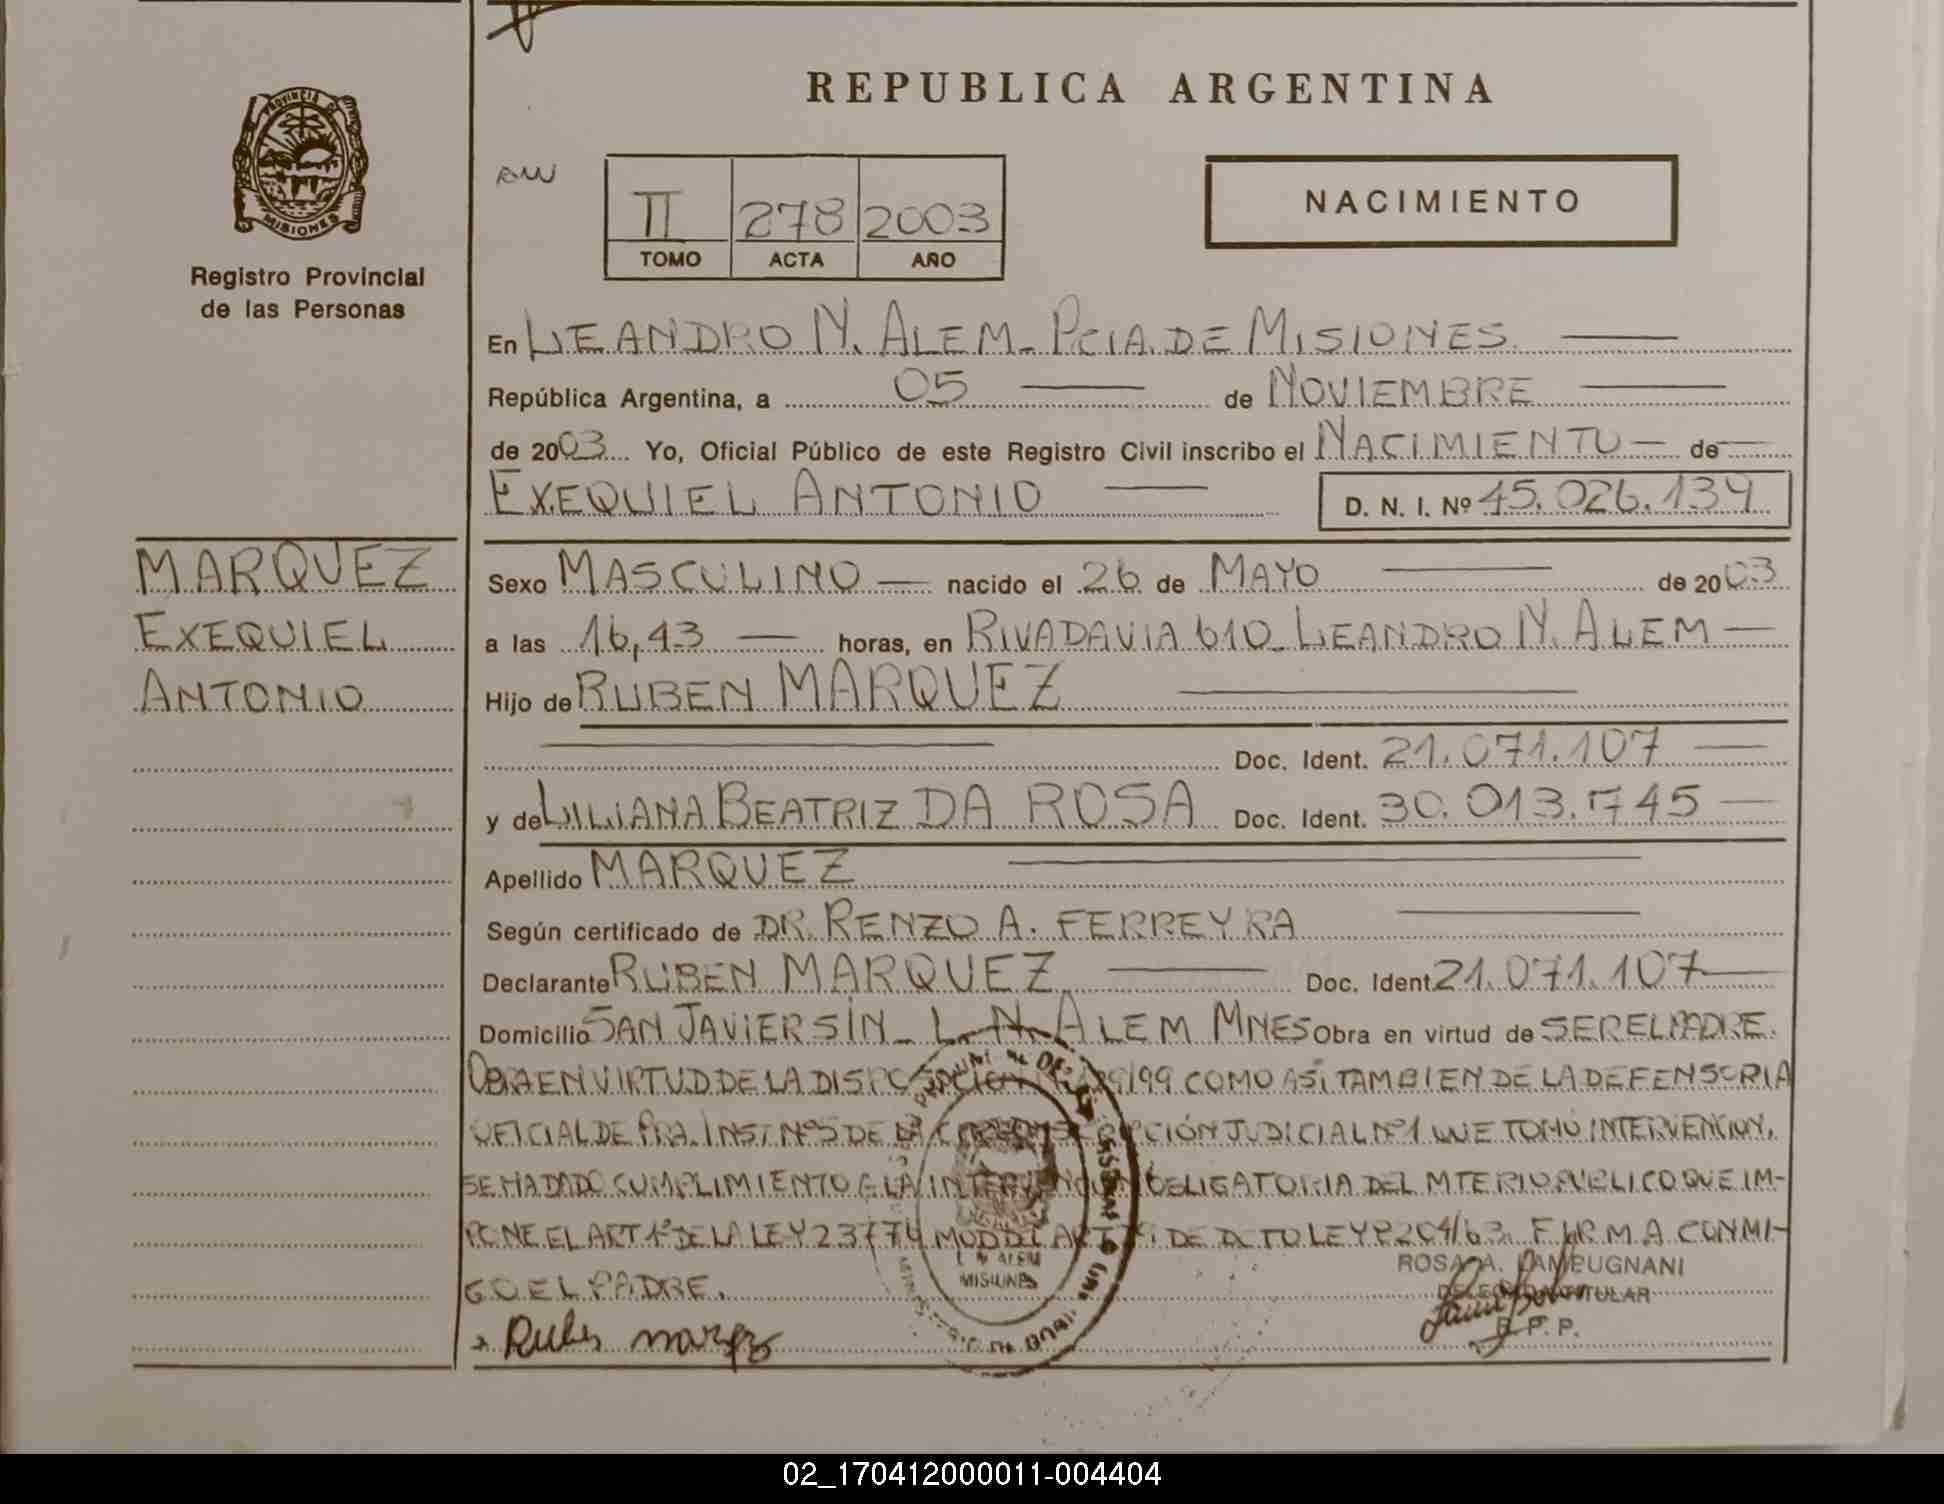 REPUBLICA ARGENTINA
PROVINCIA DE
MISIONES
Registro Provincial
de las Personas
II 278 2003
TOMO ACTA AÑO
NACIMIENTO
En LEANDRO N. ALEM - PCIA. DE MISIONES
República Argentina, a 05 de NOVIEMBRE
de 2003 Yo, Oficial Público de este Registro Civil inscribo el NACIMIENTO de
EXEQUIEL ANTONIO D. N. I. Nº 45.026.139
MARQUEZ
EXEQUIEL
ANTONIO
Sexo MASCULINO nacido el 26 de MAYO de 2003
a las 16,43 horas, en RIVADAVIA 610 - LEANDRO N. ALEM
Hijo de RUBEN MARQUEZ
Doc. Ident. 21.071.107
y de LILIANA BEATRIZ DA ROSA Doc. Ident. 30.013.745
Apellido MARQUEZ
Según certificado de DR. RENZO A. FERREYRA
Declarante RUBEN MARQUEZ Doc. Ident. 21.071.107
Domicilio SAN JAVIER S/N - L. N. ALEM MNES Obra en virtud de SER EL PADRE.
OBRA EN VIRTUD DE LA DISPOSICION /99 COMO ASI TAMBIEN DE LA DEFENSORIA
OFICIAL DE PRA. INST. Nº 5 DE LA CIRCUNSCRIPCIÓN JUDICIAL Nº 1 QUE TOMÓ INTERVENCION,
SE HA DADO CUMPLIMIENTO A LA INTERVENCION OBLIGATORIA DEL MTERIO PUBLICO QUE IM-
PONE EL ART 1º DE LA LEY 23774 MOD DEL ART DE DCTO LEY 8204/63. FIRMA CONMI-
GO EL PADRE.
L. N. ALEM
MISIONES
ROSA A. LAMPUGNANI
DELEGADA TITULAR
R. P. P.
Ruben marqez
02_170412000011-004404